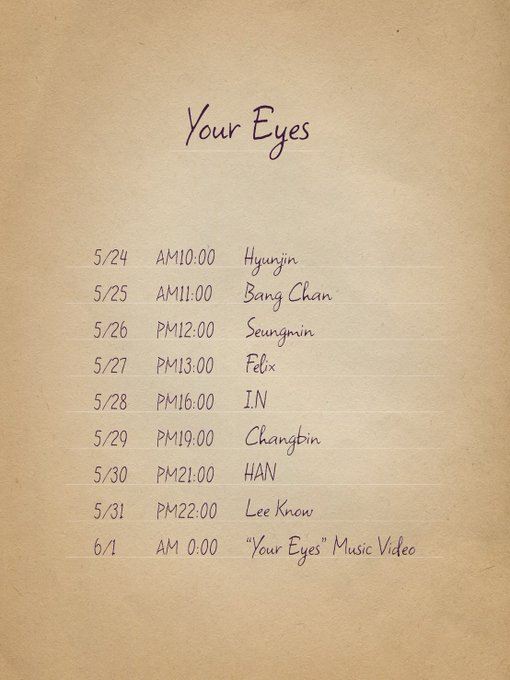 Your Eyes
5/24 AM10:00 Hyunjin
5/25 AM11:00 Bang Chan
5/26 PM12:00 Seungmin
5/27 PM13:00 Felix
5/28 PM16:00 I.N
5/29 PM19:00 Changbin
5/30 PM21:00 HAN
5/31 PM22:00 Lee Know
6/1 AM 0:00 “Your Eyes” Music Video